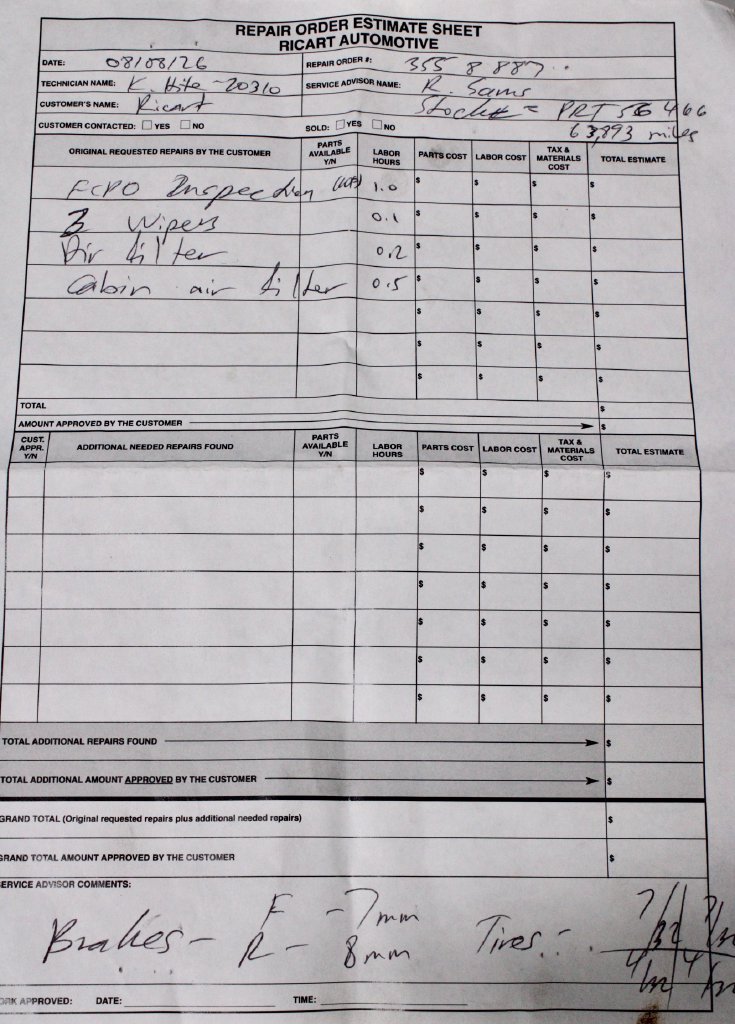 REPAIR ORDER ESTIMATE SHEET
RICART AUTOMOTIVE
DATE: 08/08/26 REPAIR ORDER #: 355 8 887
TECHNICIAN NAME: K. Hite - 20310 SERVICE ADVISOR NAME: R. Sams
CUSTOMER'S NAME: Ricart Stock# = PRT 56466
CUSTOMER CONTACTED: YES NO SOLD: YES NO 63,893 miles
ORIGINAL REQUESTED REPAIRS BY THE CUSTOMER PARTS AVAILABLE Y/N LABOR HOURS PARTS COST LABOR COST TAX & MATERIALS COST TOTAL ESTIMATE
FCPO Inspection 1.0 $ $ $ $
3 Wipers 0.1 $ $ $ $
Air filter 0.2 $ $ $ $
Cabin air filter 0.5 $ $ $ $
$ $ $ $
$ $ $ $
$ $ $ $
TOTAL $
AMOUNT APPROVED BY THE CUSTOMER $
CUST. APPR. Y/N ADDITIONAL NEEDED REPAIRS FOUND PARTS AVAILABLE Y/N LABOR HOURS PARTS COST LABOR COST TAX & MATERIALS COST TOTAL ESTIMATE
$ $ $ $
$ $ $ $
$ $ $ $
$ $ $ $
$ $ $ $
$ $ $ $
$ $ $ $
TOTAL ADDITIONAL REPAIRS FOUND $
TOTAL ADDITIONAL AMOUNT APPROVED BY THE CUSTOMER $
GRAND TOTAL (Original requested repairs plus additional needed repairs) $
GRAND TOTAL AMOUNT APPROVED BY THE CUSTOMER $
ERVICE ADVISOR COMMENTS:
F - 7mm 7/32
Brakes - R - 8mm Tires -
ORK APPROVED: DATE: TIME: